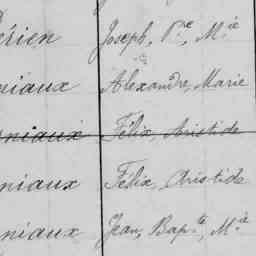 érien Joseph, P.re, M.ie
niaux Alexandre, Marie
niaux Félix, Aristide
niaux Félix, Aristide
niaux Jean, Bap.te, M.ie